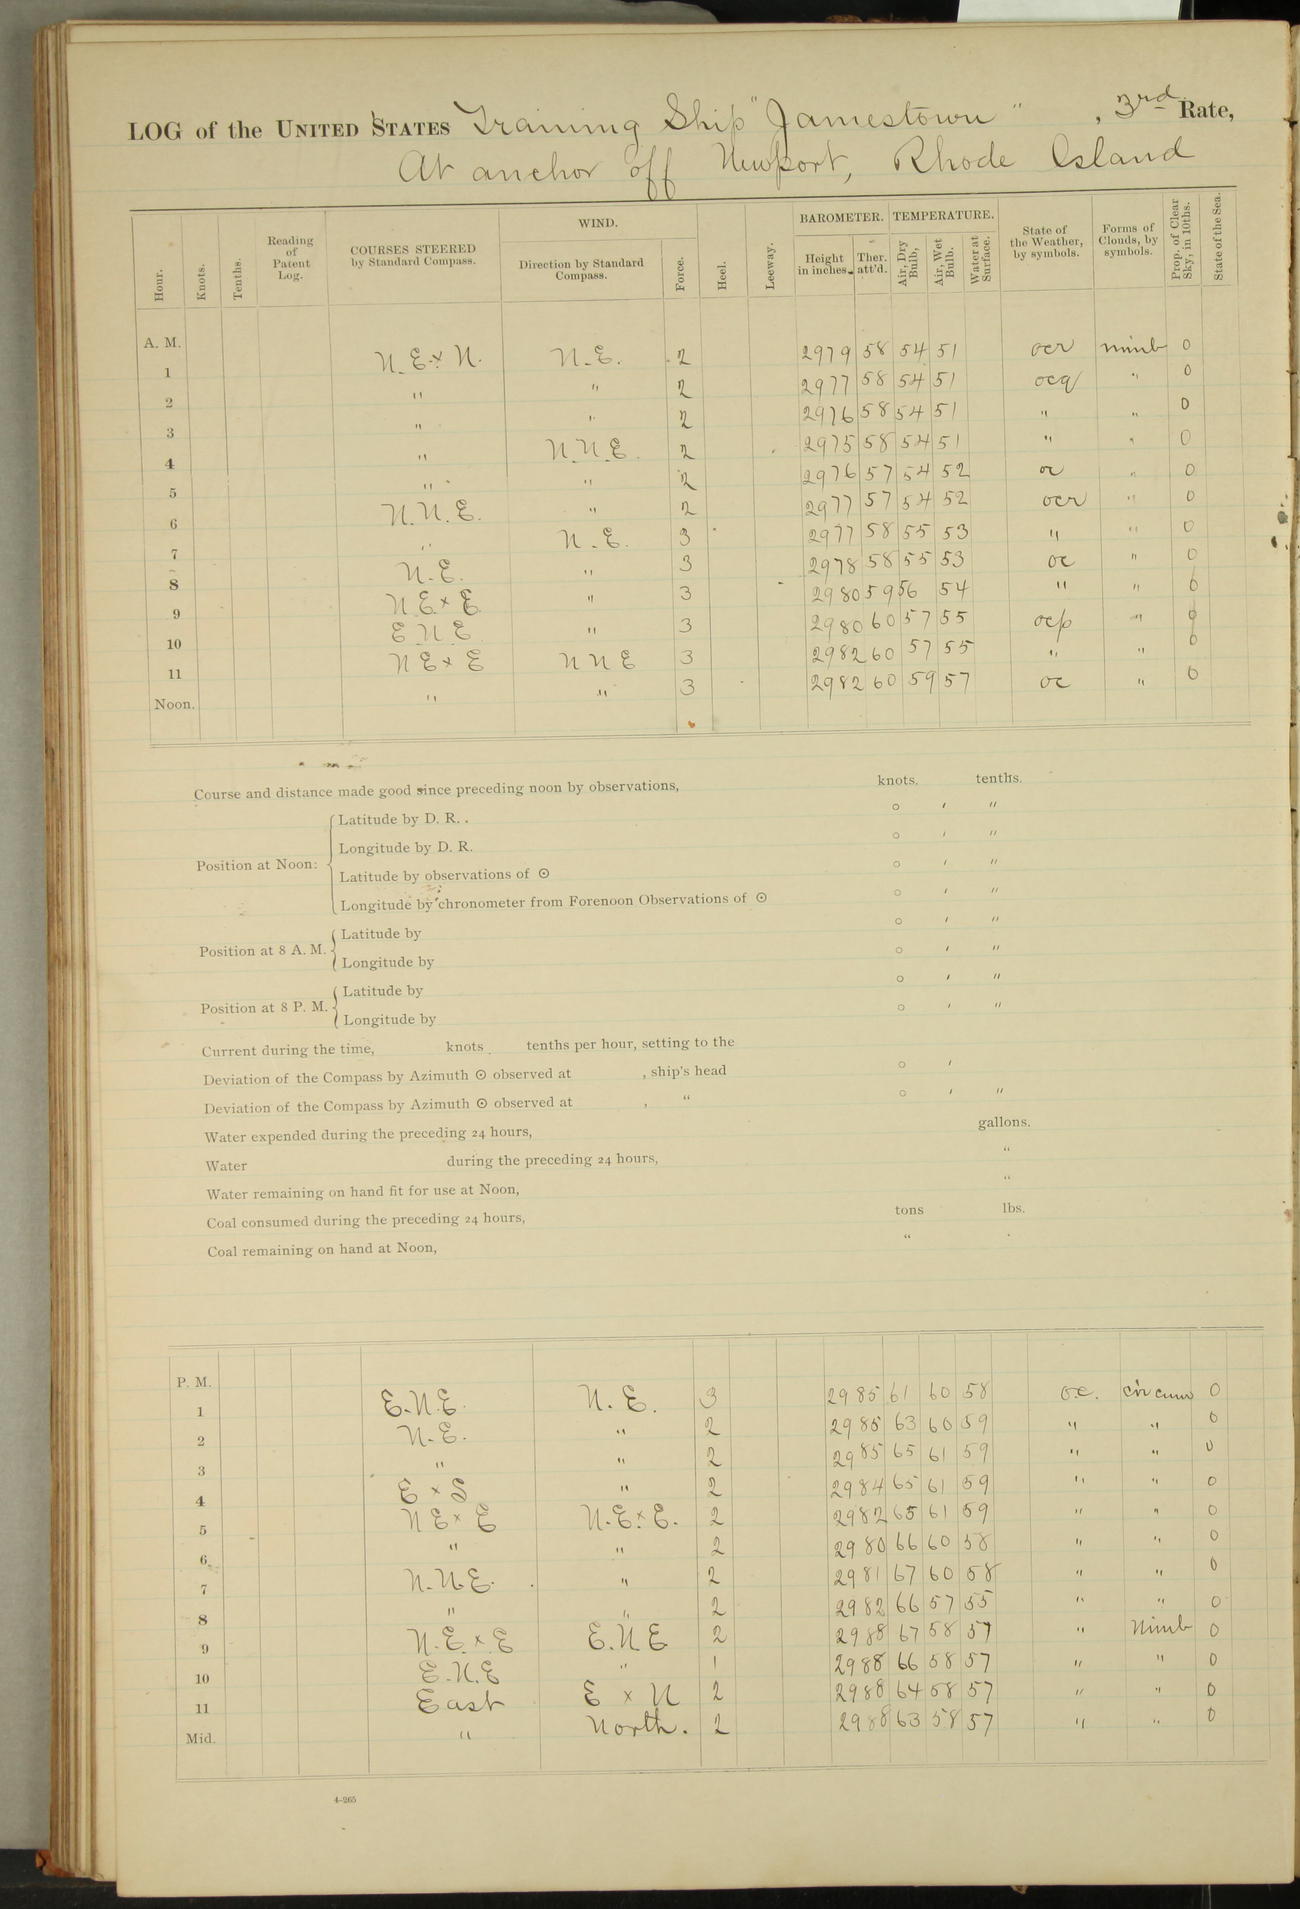 LOG of the UNITED STATES Training Ship "Jamestown", 3rd Rate,
At anchor off Newport, Rhode Island
Hour. Knots. Tenths. Reading of Patent Log. COURSES STEERED by Standard Compass. WIND. Direction by Standard Compass. Force. Heel. Leeway. BAROMETER. Height in inches. Ther. att'd. TEMPERATURE. Air, Dry Bulb, Air, Wet Bulb. Water at Surface. State of the Weather, by symbols. Forms of Clouds, by symbols. Prop. of Clear Sky, in 10ths. State of the Sea.
A. M.
1 N.E.x N. N.E. 2 2979 58 54 51 ocr nimb 0
2 " " 2 2977 58 54 51 ocq " 0
3 " " 2 2976 58 54 51 " " 0
4 " N.N.E. 2 2975 58 54 51 " " 0
5 " " 2 2976 57 54 52 oc " 0
6 N.N.E. " 2 2977 57 54 52 ocr " 0
7 " N.E. 3 2977 58 55 53 " " 0
8 N.E. " 3 2978 58 55 53 oc " 0
9 N.E.x E. " 3 2980 59 56 54 " " 0
10 E N E " 3 2980 60 57 55 ocp " 0
11 N E x E N N E 3 2982 60 57 55 " " 0
Noon. " " 3 2982 60 59 57 oc " 0
Course and distance made good since preceding noon by observations, knots. tenths.
Position at Noon: Latitude by D. R. . ° ′ ″
Longitude by D. R. ° ′ ″
Latitude by observations of ⊙ ° ′ ″
Longitude by chronometer from Forenoon Observations of ⊙ ° ′ ″
Position at 8 A. M. Latitude by ° ′ ″
Longitude by ° ′ ″
Position at 8 P. M. Latitude by ° ′ ″
Longitude by ° ′ ″
Current during the time, knots tenths per hour, setting to the
Deviation of the Compass by Azimuth ⊙ observed at , ship's head ° ′
Deviation of the Compass by Azimuth ⊙ observed at , " ° ′ ″
Water expended during the preceding 24 hours, gallons.
Water during the preceding 24 hours, "
Water remaining on hand fit for use at Noon, "
Coal consumed during the preceding 24 hours, tons lbs.
Coal remaining on hand at Noon, "
P. M.
1 E.N.E. N.E. 3 2985 61 60 58 o.c. cir cum 0
2 N.E. " 2 2985 63 60 59 " " 0
3 " " 2 2985 65 61 59 " " 0
4 E x S " 2 2984 65 61 59 " " 0
5 N E x E N.E.x E. 2 2982 65 61 59 " " 0
6 " " 2 2980 66 60 58 " " 0
7 N.N.E. " 2 2981 67 60 58 " " 0
8 " " 2 2982 66 57 55 " " 0
9 N.E.x E E.N.E 2 2988 67 58 57 " Nimb 0
10 E.N.E " 1 2988 66 58 57 " " 0
11 East E x N 2 2988 64 58 57 " " 0
Mid. " North. 2 2988 63 58 57 " " 0
4-265